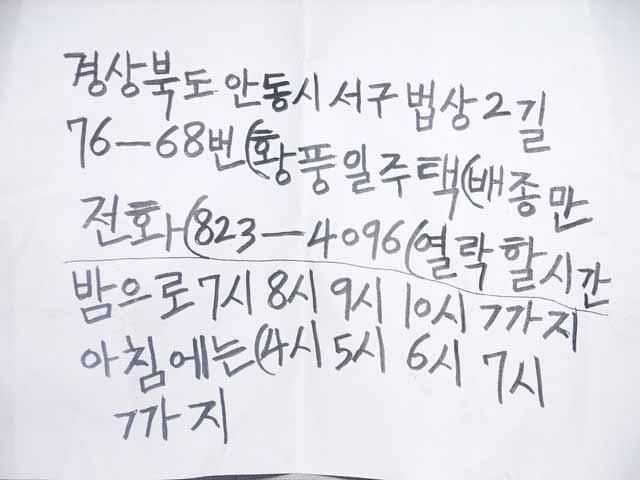 경상북도 안동시 서구 법상2길
76-68번(황풍일주택(배종만
전화(823-4096(열락할시간
밤으로7시 8시 9시 10시 까지
아침에는(4시 5시 6시 7시
까지